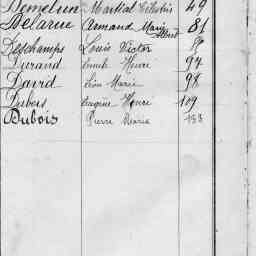 Demelun Martial Célestin 49
Delarue Armand Marie Albert 81
Deschamps Louis Victor 90
Durand Emile Henri 94
David Léon Marie 98
Dubois Eugène Henri 109
Dubois Pierre Marie 153